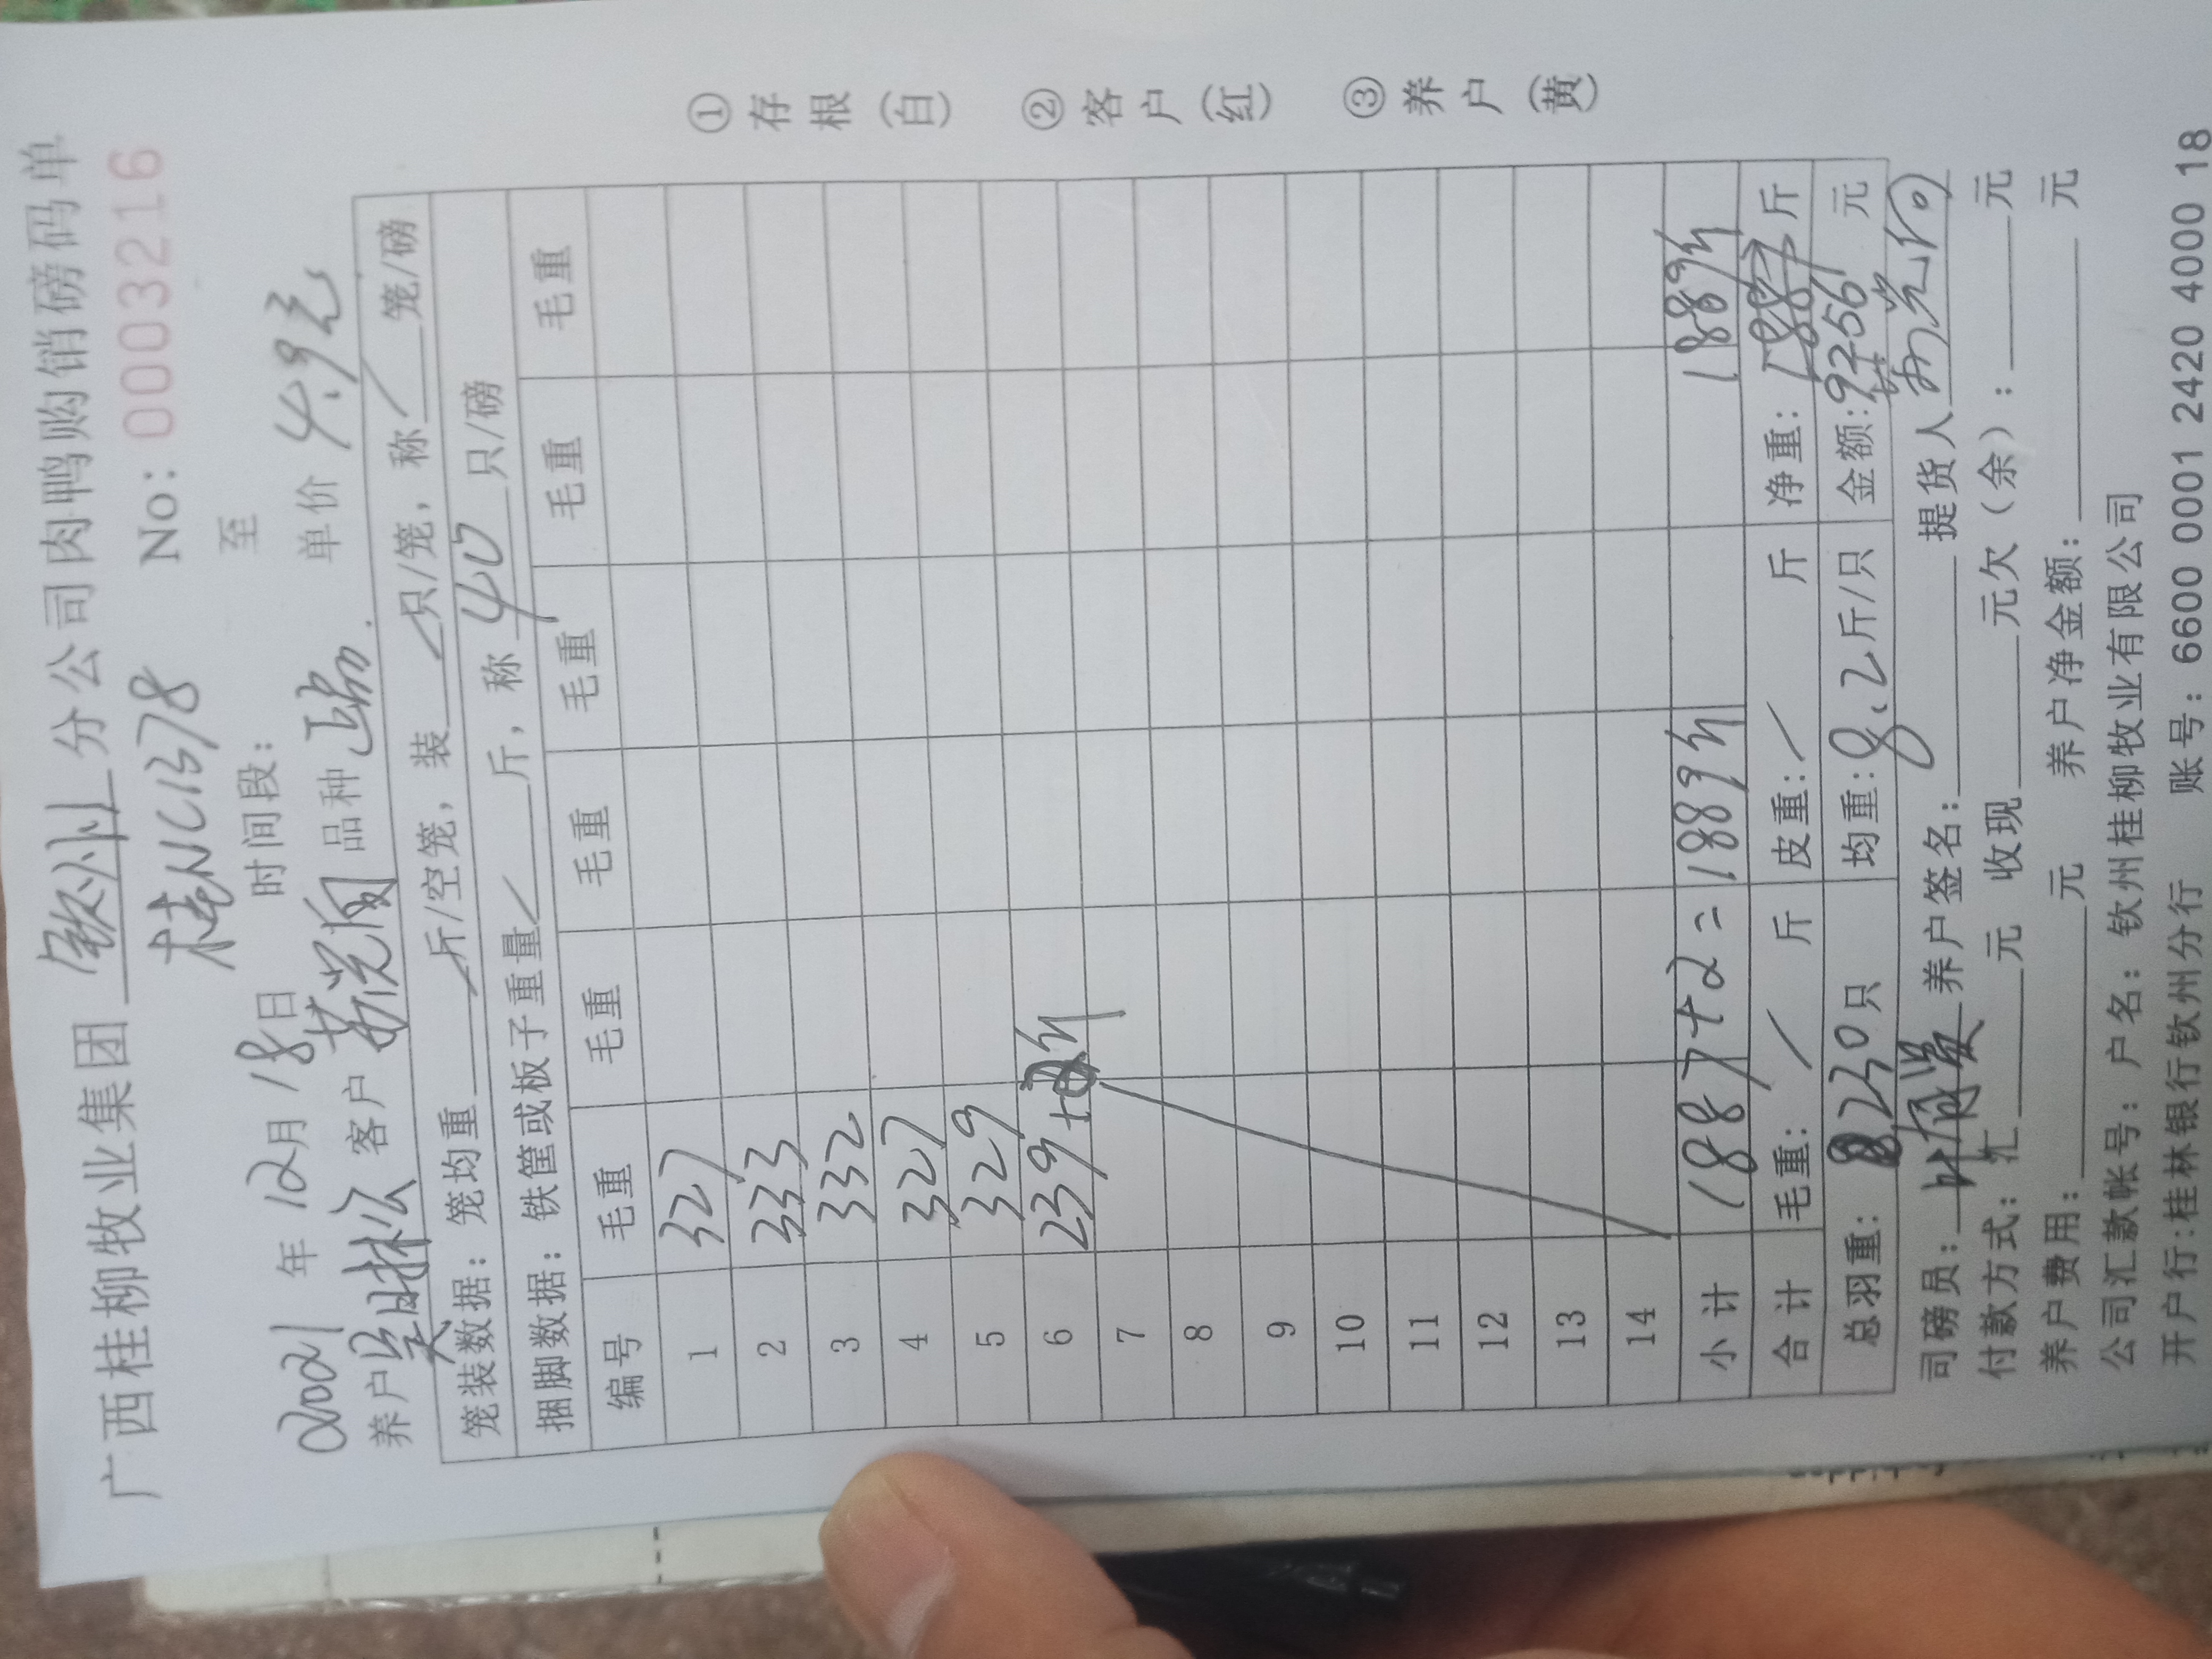 广西桂柳牧业集团 钦州 分公司肉鸭购销磅码单
桂NC1378 No: 0003216
2021 年 12月 18日 时间段: 至
养户 客户 品种 单价 4.9元
笼装数据: 笼均重 / 斤/空笼, 装 / 只/笼, 称 / 笼/磅
捆脚数据: 铁筐或板子重量 / 斤, 称 40 只/磅
编号 毛重 毛重 毛重 毛重 毛重 毛重
1 327
2 333
3 332
4 327
5 329
6 239+2斤
7
8
9
10
11
12
13
14
小计 1887+2=1889斤 1889斤
合计 毛重: / 斤 皮重: / 斤 净重: 斤
总羽重: 230只 均重: 8.2斤/只 金额: 9256 元
司磅员: 养户签名: 提货人
付款方式: 汇 元 收现 元欠(余): 元
养户费用: 元 养户净金额: 元
公司汇款帐号: 户名: 钦州桂柳牧业有限公司
开户行:桂林银行钦州分行 账号: 6600 0001 2420 4000 18
①存根(白) ②客户(红) ③养户(黄)